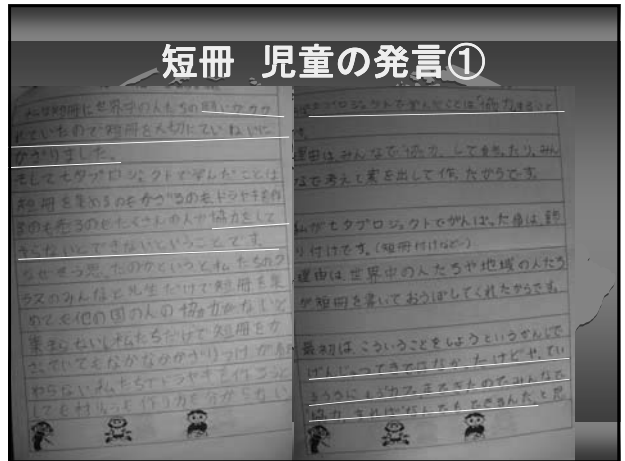 短冊　児童の発言①
短冊に世界中の人たちの願いがかか
れていたので短冊を大切にていねいに
かざりました。
そして七夕プロジェクトで学んだことは
短冊を集めるのもかざるのもドラヤキを作
るのも売るのもたくさんの人が協力をして
もらないとできないということです。
なぜそう思ったのかというと私たちのク
ラスのみんなと先生だけで短冊を集
めても他の国の人の協力がないと
集まらないし私たちだけで短冊をか
ざっていてもなかなかかざりつけが
わらない私たちでドラヤキを作ろうと
しても材
七夕プロジェクトで学んだことは「協力すること
理由は、みんなで協力して
なで考えて案を出して作ったからです。
私が七夕プロジェクトでがんばった事は、
り付けです。(短冊付けなど)
理由は、世界中の人たちや地域の人たち
が短冊を書いておうぼしてくれたからです。
最初は、こういうことをしようというかんじで
げんじつてきではなかったけどやってい
みんなで
協力すればなんでもできるんだと思